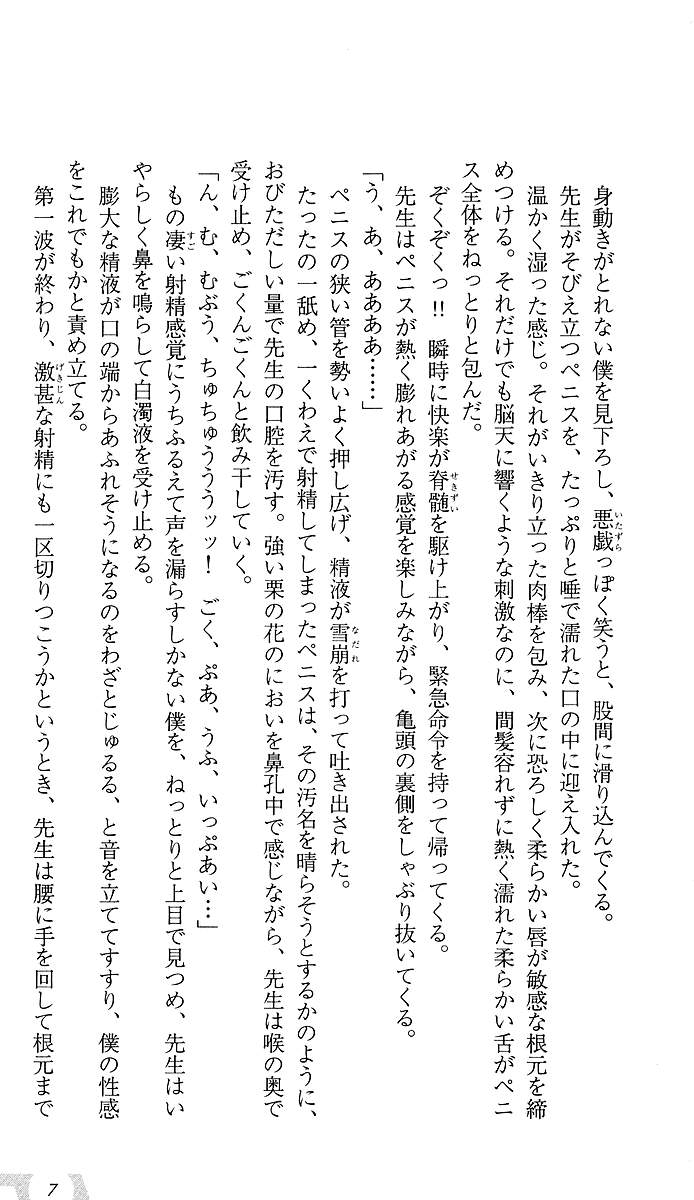 身動きがとれない僕を見下ろし、悪戯っぽく笑うと、股間に滑り込んでくる。
先生がそびえ立つペニスを、たっぷりと唾で濡れた口の中に迎え入れた。
温かく湿った感じ。それがいきり立った肉棒を包み、次に恐ろしく柔らかい唇が敏感な根元を締
めつける。それだけでも脳天に響くような刺激なのに、間髪容れずに熱く濡れた柔らかい舌がペニ
ス全体をねっとりと包んだ。
ぞくぞくっ!! 瞬時に快楽が脊髄を駆け上がり、緊急命令を持って帰ってくる。
先生はペニスが熱く膨れあがる感覚を楽しみながら、亀頭の裏側をしゃぶり抜いてくる。
「う、あ、ああああ……」
ペニスの狭い管を勢いよく押し広げ、精液が雪崩を打って吐き出された。
たったの一舐め、一くわえで射精してしまったペニスは、その汚名を晴らそうとするかのように、
おびただしい量で先生の口腔を汚す。強い栗の花のにおいを鼻孔中で感じながら、先生は喉の奥で
受け止め、ごくんごくんと飲み干していく。
「ん、む、むぶう、ちゅちゅうううッッ! ごく、ぷあ、うふ、いっぷあい…」
もの凄い射精感覚にうちふるえて声を漏らすしかない僕を、ねっとりと上目で見つめ、先生はい
やらしく鼻を鳴らして白濁液を受け止める。
膨大な精液が口の端からあふれそうになるのをわざとじゅるる、と音を立ててすすり、僕の性感
をこれでもかと責め立てる。
第一波が終わり、激甚な射精にも一区切りつこうかというとき、先生は腰に手を回して根元まで
7